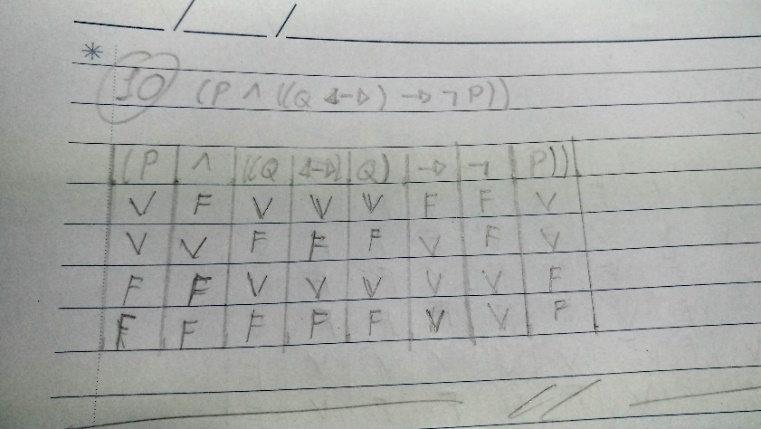 *
10 (P ∧ ((Q ↔) → ¬P))
(P ∧ ((Q ↔ Q) → ¬ P))
V F V V V F F V
V V F F F V F V
F F V V V V V F
F F F F F V V F